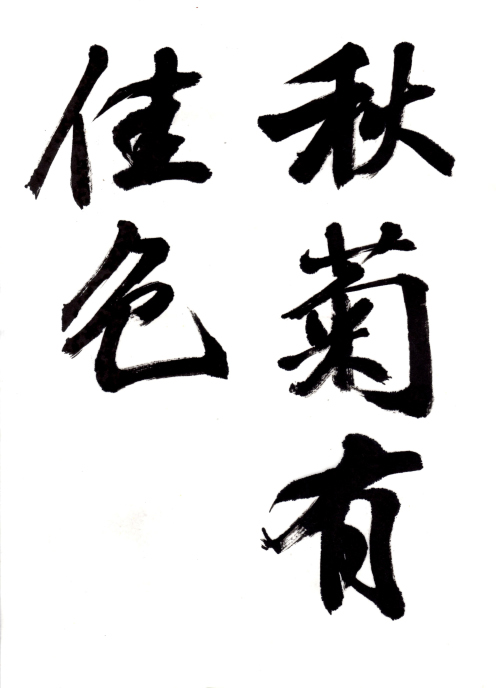 秋菊有
佳色